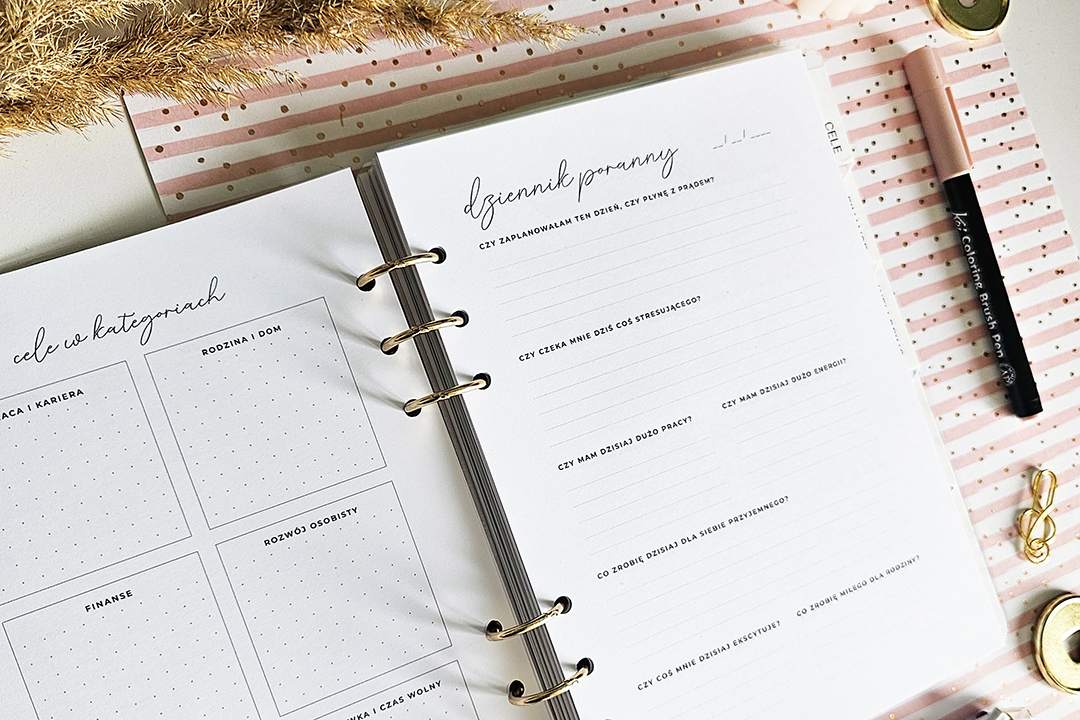 cele w kategoriach
KARIERA
RODZINA I DOM
FINANSE
ROZWÓJ OSOBISTY
I CZAS WOLNY
dziennik poranny
__/__/____
CZY ZAPLANOWAŁAM TEN DZIEŃ, CZY PŁYNĘ Z PRĄDEM?
CZY CZEKA MNIE DZIŚ COŚ STRESUJĄCEGO?
CZY MAM DZISIAJ DUŻO PRACY?
CZY MAM DZISIAJ DUŻO ENERGII?
CO ZROBIĘ DZISIAJ DLA SIEBIE PRZYJEMNEGO?
CZY COŚ MNIE DZISIAJ EKSCYTUJE?
CO ZROBIĘ MIŁEGO DLA RODZINY?
CELE
Koi Coloring Brush Pen